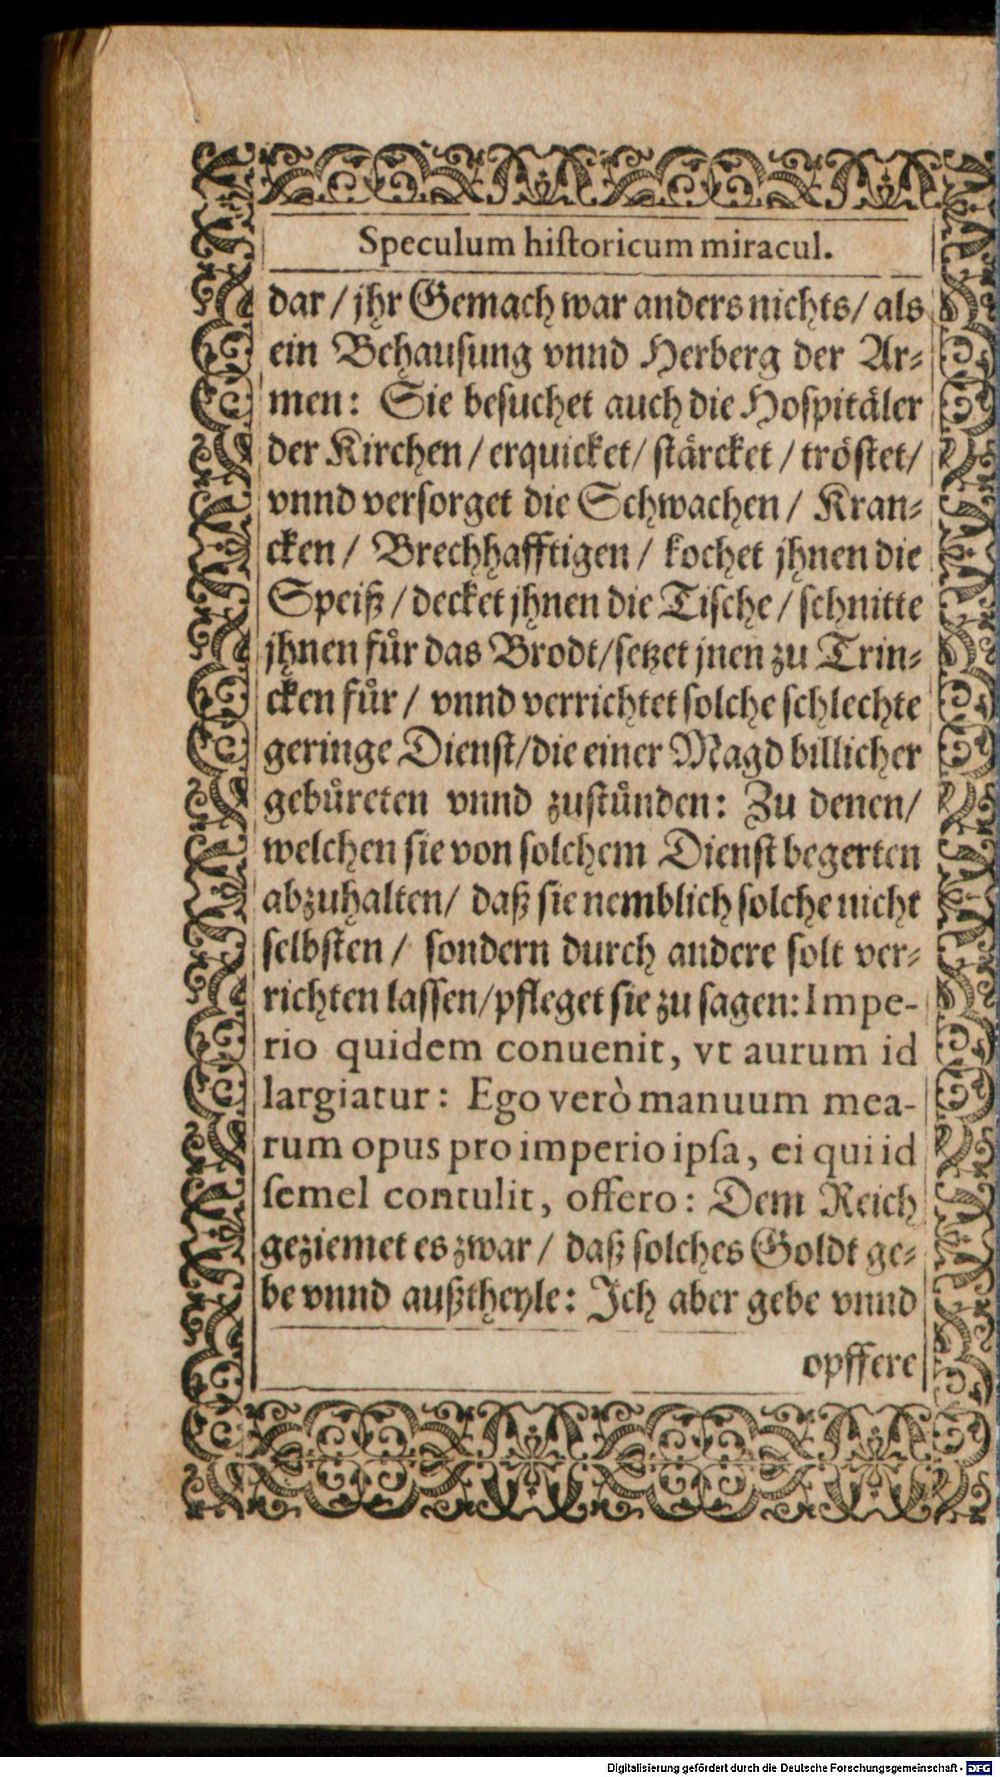 Speculum hiſtoricum miracul.
dar / jhr Gemach war anders nichts / als
ein Behauſung vnnd Herberg der Ar⸗
men: Sie beſuchet auch die Hoſpitåler
der Kirchen / erquicket / ſtårcket / tröſtet /
vnnd verſorget die Schwachen / Kran⸗
cken / Brechhafftigen / kochet jhnen die
Speiß / decket jhnen die Tiſche / ſchnitte
jhnen fůr das Brodt / ſetzet jnen zu Trin⸗
cken fůr / vnnd verrichtet ſolche ſchlechte
geringe Dienſt / die einer Magd billicher
gebůreten vnnd zuſtůnden: Zu denen /
welchen ſie von ſolchem Dienſt begerten
abzuhalten / daß ſie nemblich ſolche nicht
ſelbſten / ſondern durch andere ſolt ver⸗
richten laſſen / pfleget ſie zu ſagen: Impe-
rio quidem conuenit, vt aurum id
largiatur: Ego verò manuum mea-
rum opus pro imperio ipſa, ei qui id
ſemel contulit, offero: Dem Reich
geziemet es zwar / daß ſolches Goldt ge⸗
be vnnd außtheyle: Ich aber gebe vnnd
opffere
Digitalisierung gefördert durch die Deutsche Forschungsgemeinschaft - DFG